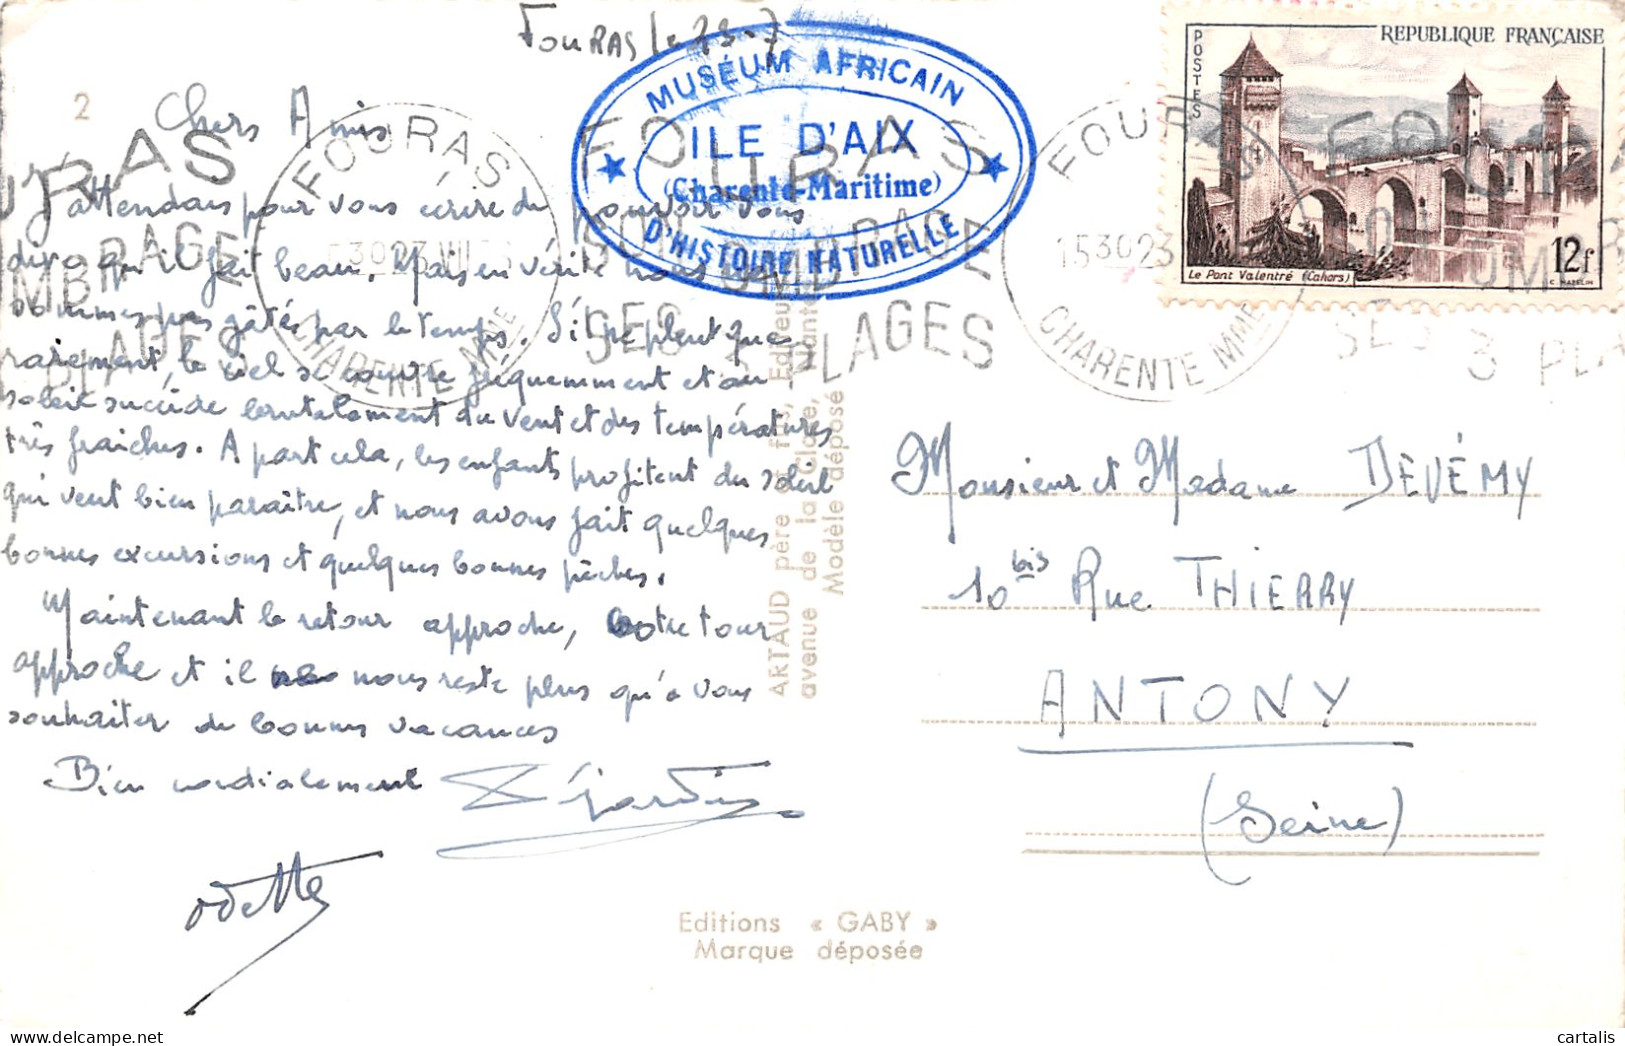 Fouras le 23-7
2
Chers Amis
J'attendais pour vous écrire de pouvoir vous
dire qu'il fait beau. Mais en vérité nous
sommes pas gâtés par le temps. S'il ne pleut que
rarement, le ciel se couvre fréquemment et au
soleil succède brutalement du vent et des températures
très fraîches. A part cela, les enfants profitent du soleil
qui veut bien paraître, et nous avons fait quelques
bonnes excursions et quelques bonnes pêches.
Maintenant le retour approche, votre tour
approche et il nous reste plus qu'à vous
souhaiter de bonnes vacances
Bien cordialement
Odette
MUSÉUM AFRICAIN
ILE D'AIX
(Charente-Maritime)
D'HISTOIRE NATURELLE
FOURAS
CHARENTE MME
FOURAS
SES 3 PLAGES
FOURAS
1530 23
CHARENTE MME
SES 3 PLA
POSTES
REPUBLIQUE FRANÇAISE
Le Pont Valentré (Cahors)
12f
C. MAZELIN
ARTAUD père et fils, Editeurs
avenue de la Close, Nantes
Modèle déposé
Monsieur et Madame DEVÉMY
10 bis Rue THIERRY
ANTONY
(Seine)
Editions « GABY »
Marque déposée
cartalis